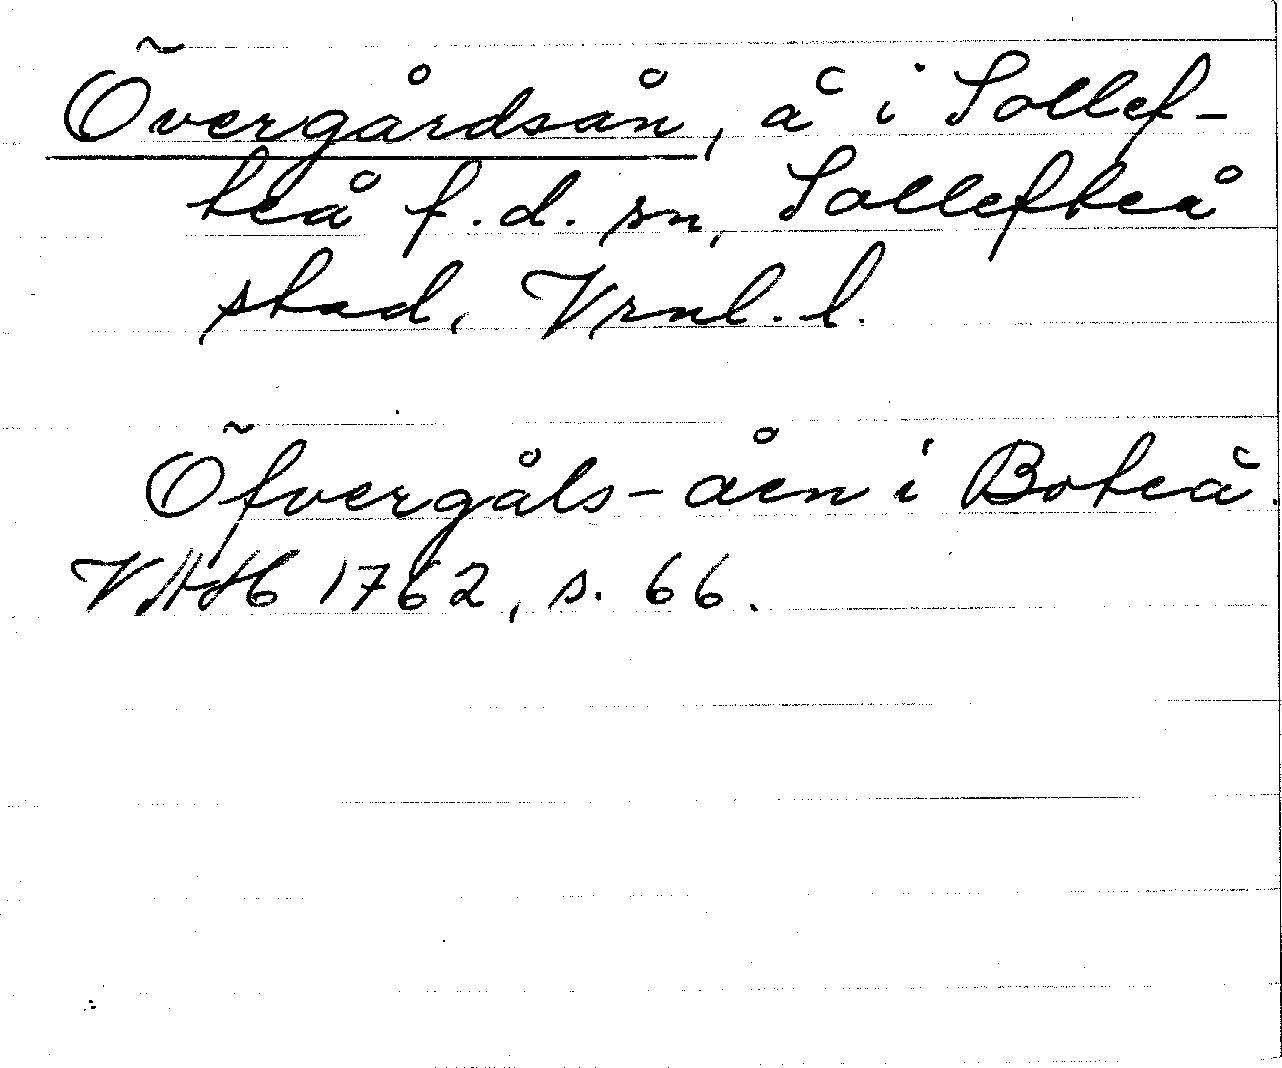 Övergårdsån, å i Sollef-
teå f.d. sn, Sollefteå
stad, Vrnl. l.
Öfvergåls-åen i Boteå.
VAH 1762, s. 66.